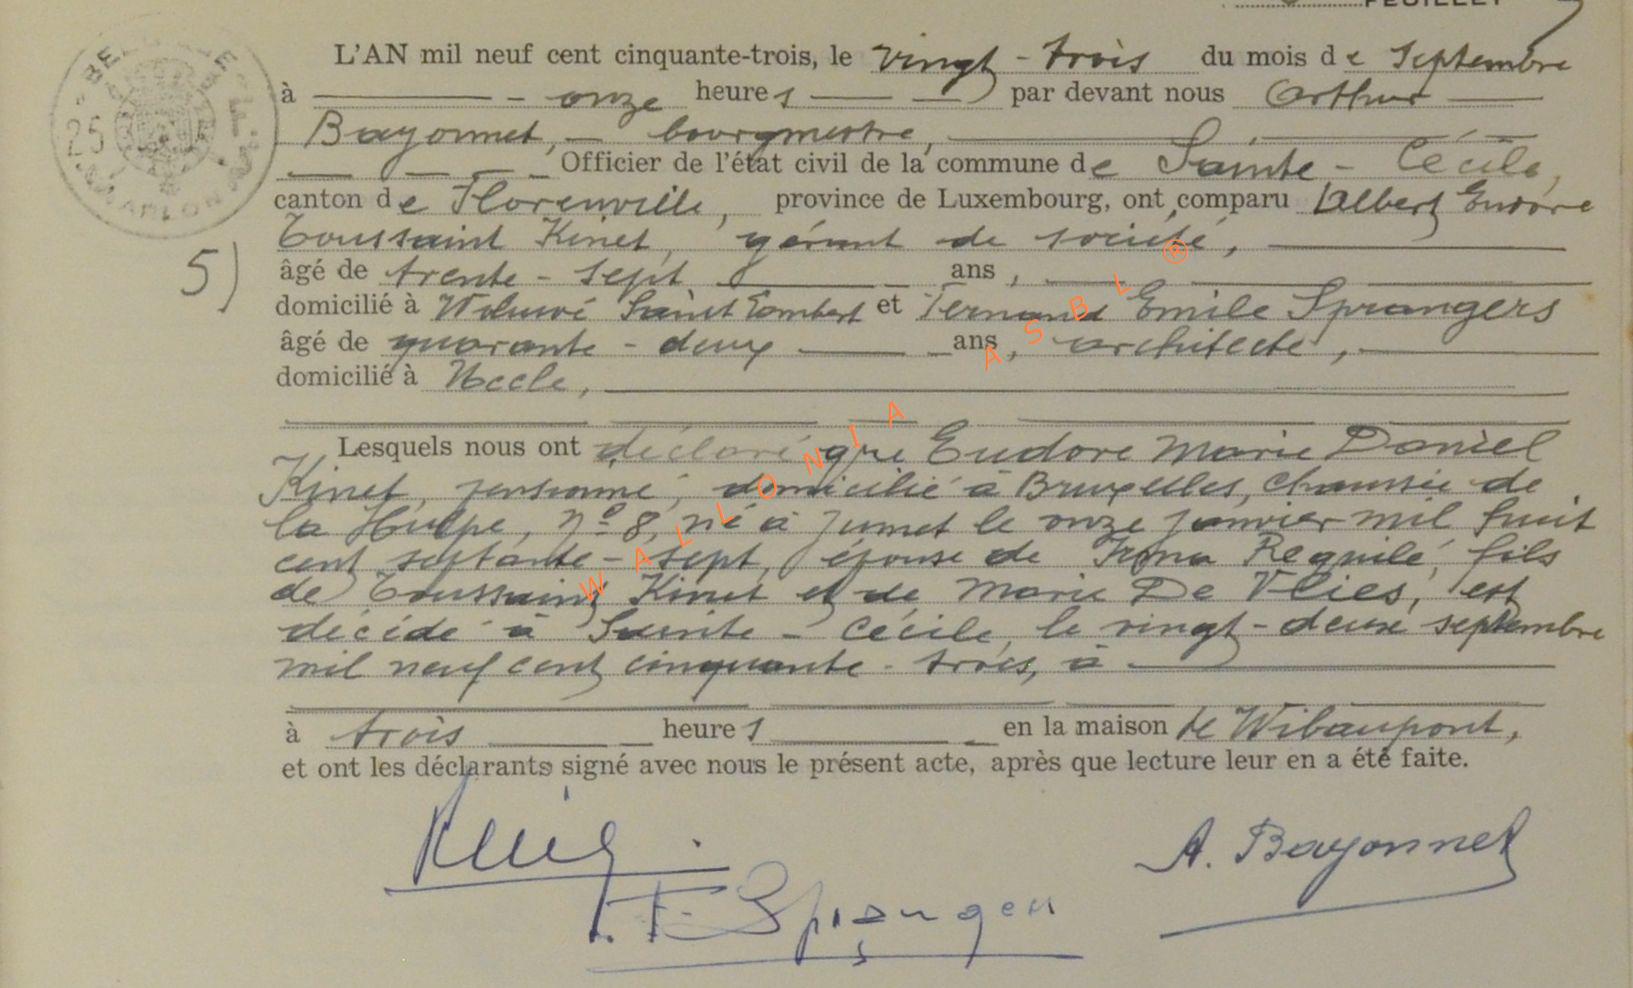 FEUILLET
L'AN mil neuf cent cinquante-trois, le vingt-trois du mois de Septembre
à onze heures par devant nous Arthur
Bayonnet, bourgmestre,
Officier de l'état civil de la commune de Sainte-Cécile,
canton de Florenville, province de Luxembourg, ont comparu Albert Eudore
Toussaint Kinet, gérant de société,
5)
âgé de trente-sept ans,
domicilié à Woluwé Saint Lambert et Fernand Emile Sprangers
âgé de quarante-deux ans, architecte,
domicilié à Uccle,
Lesquels nous ont déclaré que Eudore Marie Daniel
Kinet, pensionné, domicilié à Bruxelles, Chaussée de
la Hulpe, n° 8, né à Jumet le onze janvier mil huit
cent septante-sept, époux de Irma Requilé, fils
de Toussaint Kinet et de Marie De Vlies, est
décédé à Sainte-Cécile, le vingt-deux septembre
mil neuf cent cinquante-trois, à
à trois heures en la maison de Wibaupont,
et ont les déclarants signé avec nous le présent acte, après que lecture leur en a été faite.
A. Bayonnet
F. Sprangers
WALLONIA ASBL ®
BELGIQUE
25
ARLON